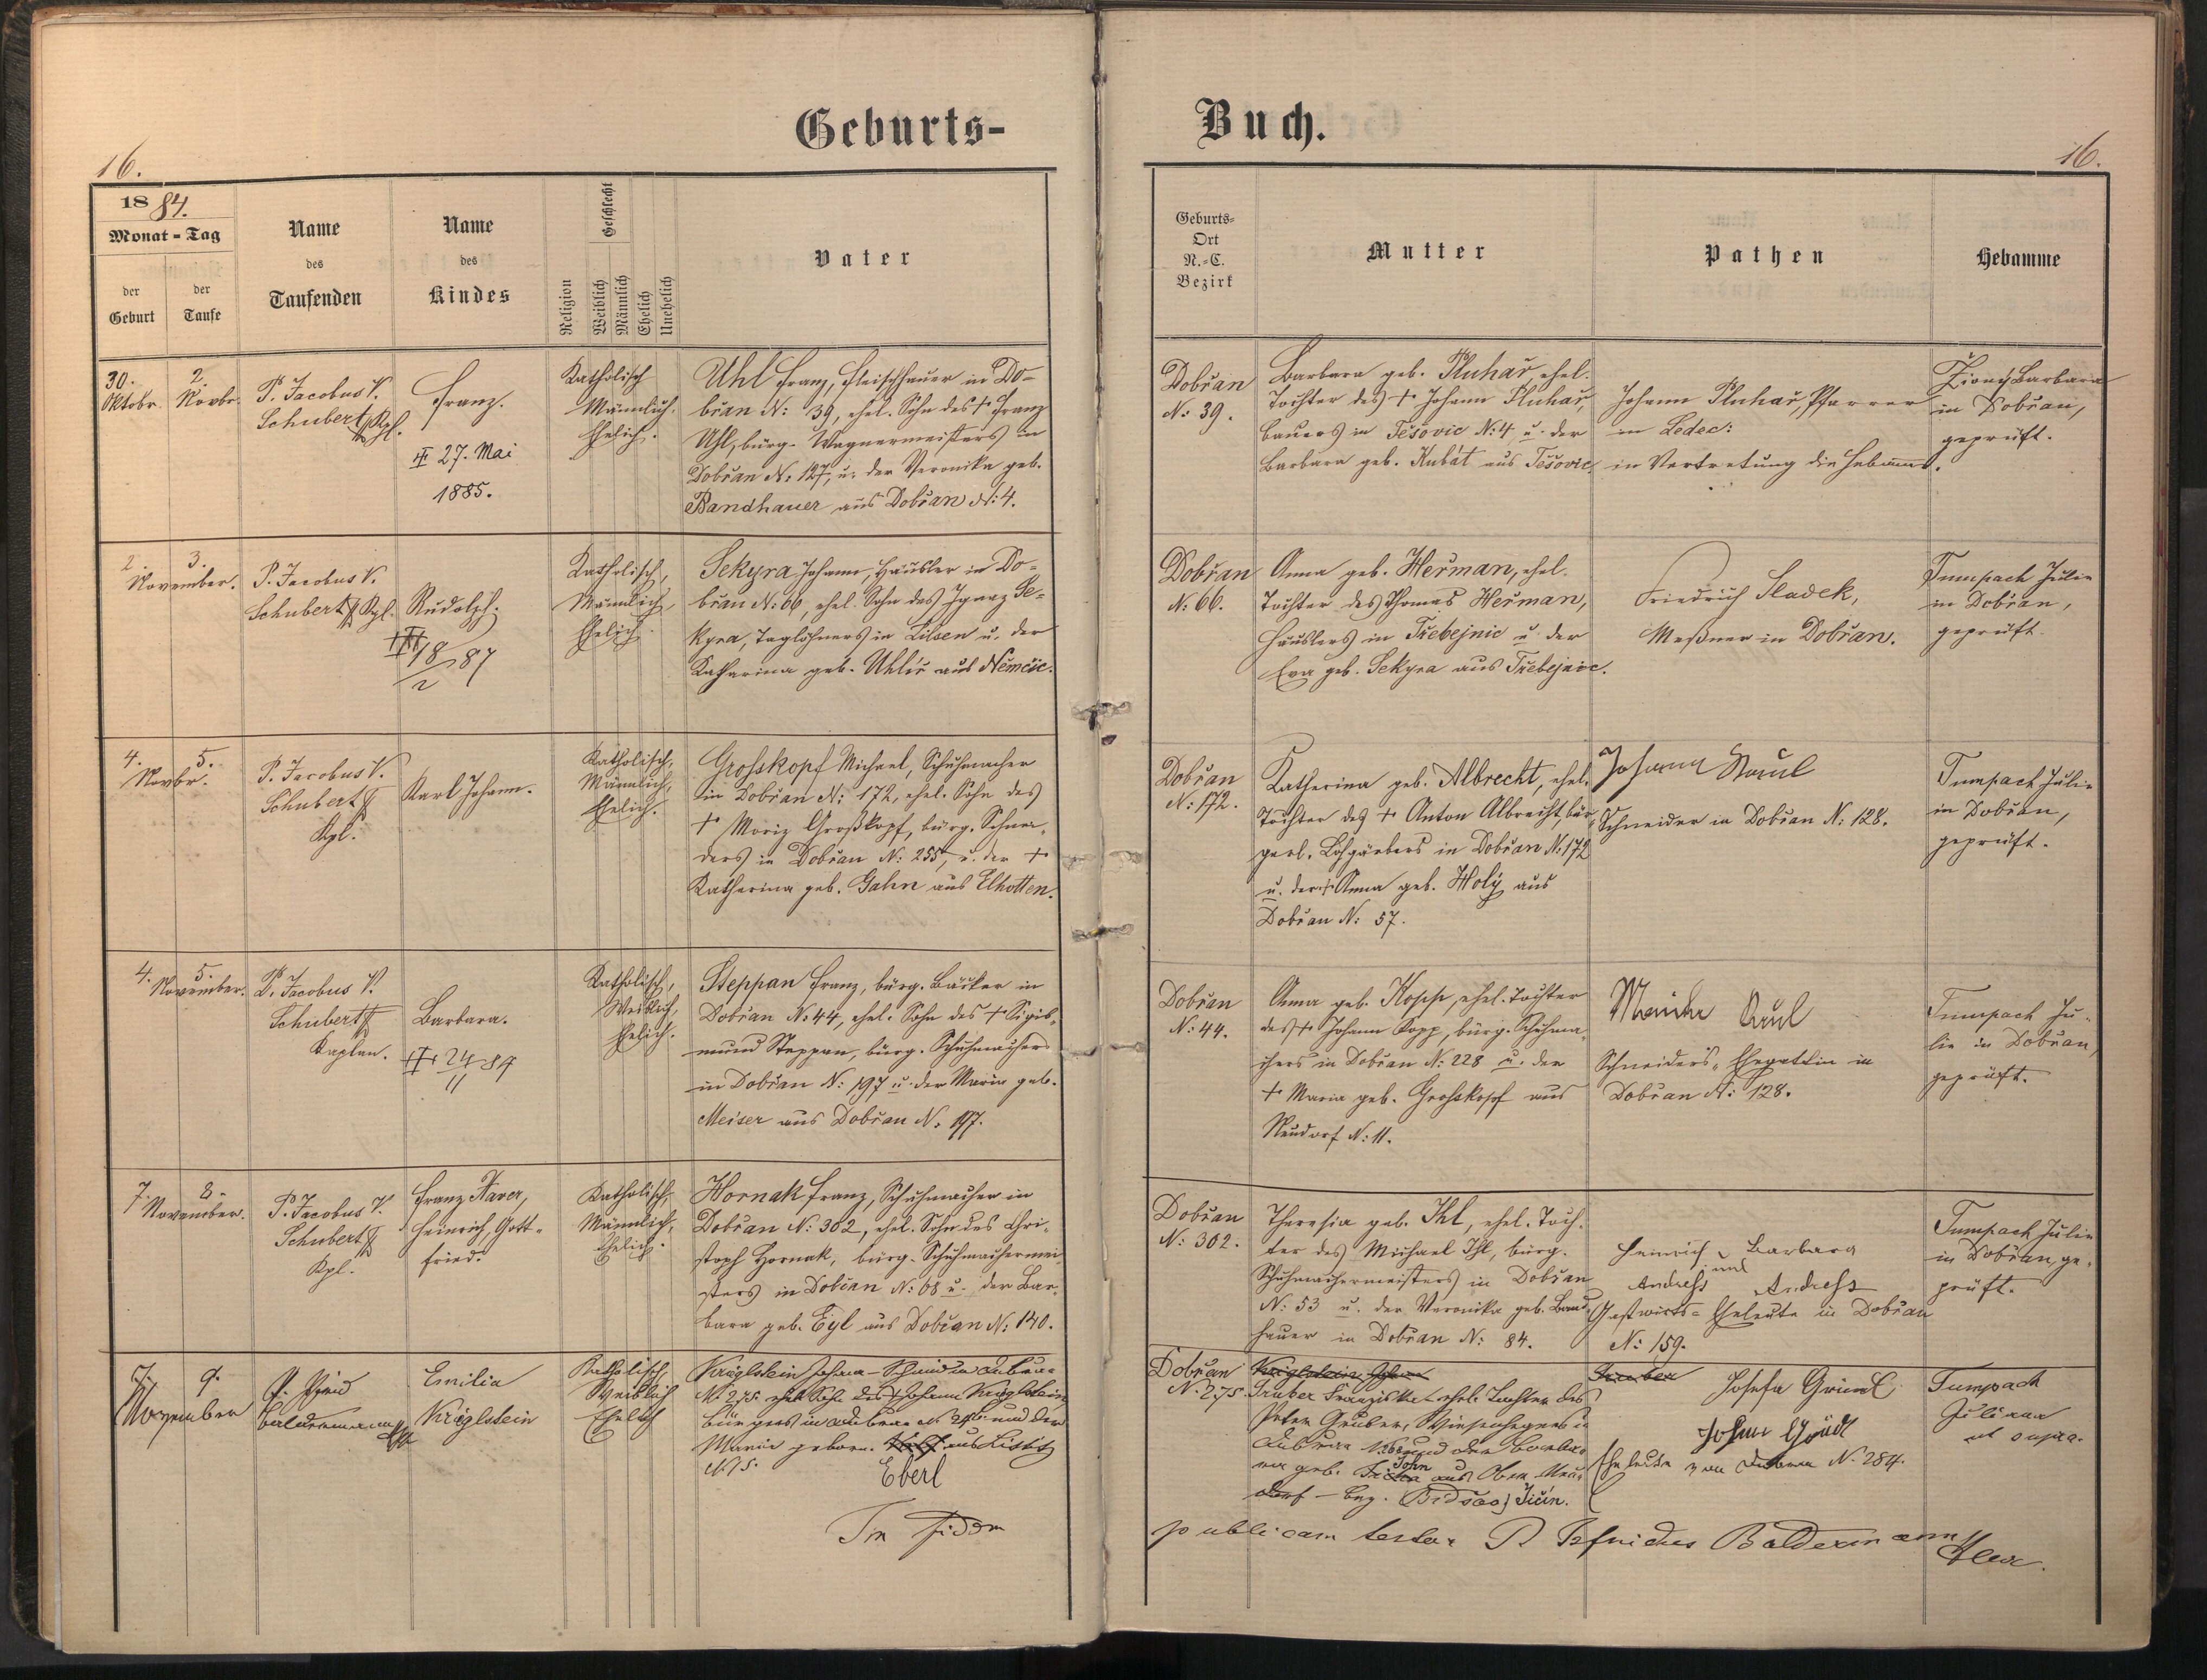 Geburts-
16.
1884.
Monat - Tag
der Geburt
der Taufe
Name des Taufenden
Name des Kindes
Religion
Geschlecht
Weiblich
Männlich
Ehelich
Unehelich
Vater
30. Oktobr.
2. Novbr.
P. Jacobus V.
Schubert, Kpl.
Franz.
27. Mai
1885.
Katholisch
Männlich,
Ehelich.
Uhl Franz, Fleischhauer in Do-
břan N: 39, ehel. Sohn des † Franz
Uhl, bürg. Wagnermeisters in
Dobřan N: 127, u. der Veronika geb.
Bandhauer aus Dobřan N: 4.
2. November.
3.
P. Jacobus V.
Schubert Kpl.
Rudolph.
18/2 87
Katholisch,
Männlich,
Ehelich.
Sekyra Johann, Häusler in Do-
břan N: 66, ehel. Sohn des Ignaz Se-
kyra, Taglöhners in Lilsen u. der
Katharina geb. Uhlíř aus Němčic.
4. Novbr.
5.
P. Jacobus V.
Schubert
Kpl.
Karl Johann.
Katholisch,
Männlich,
Ehelich.
Grosskopf Michael, Schuhmacher
in Dobřan N: 172, ehel. Sohn des
† Moriz Großkopf, bürg. Schnei-
ders in Dobřan N: 255, u. der †
Katharina geb. Gahn aus Elhotten.
4. November.
5.
P. Jacobus V.
Schubert
Kaplan.
Barbara.
24/11 84
Katholisch,
Weiblich,
Ehelich.
Steppan Franz, bürg. Bäcker in
Dobřan N: 44, ehel. Sohn des † Sigis-
mund Steppan, bürg. Schuhmachers
in Dobřan N: 197 u. der Maria geb.
Meiser aus Dobřan N: 197.
7. November.
8.
P. Jacobus V.
Schubert
Kpl.
Franz Xaver,
Heinrich, Gott-
fried.
Katholisch,
Männlich,
Ehelich.
Hornak Franz, Schuhmacher in
Dobřan N: 302, ehel. Sohn des Chri-
stoph Hornak, bürg. Schuhmachermei-
sters in Dobřan N: 68 u. der Bar-
bara geb. Eyl aus Dobřan N: 140.
7. November
9.
Emilia
Kriglstein
Katholisch,
Weiblich
Ehelich
Kriglstein Johann - Schmid in
N. 275 ehel. Sohn des † Johann Kriglstein
Bürgers in und der
Maria geborn. aus
N. 5.
Eberl
In fidem
Buch.
16.
Geburts-
Ort
N.-C.
Bezirk
Mutter
Pathen
Hebamme
Dobřan
N: 39.
Barbara geb. Pluhař, ehel.
Tochter des † Johann Pluhař,
Bauers in Těšovic N: 4 u. der
Barbara geb. Kubát aus Těšovic.
Johann Pluhař, Pfarrer
in Ledec:
in Vertretung die Hebamme.
Barbara
in Dobřan,
geprüft.
Dobřan
N: 66.
Anna geb. Heřman, ehel.
Tochter des Thomas Heřman,
Häuslers in Třebejnic u. der
Eva geb. Sekyra aus Třebejnic.
Friedrich Sladek,
Meßner in Dobřan.
Tumpach Julie
in Dobřan,
geprüft.
Dobřan
N: 172.
Katharina geb. Albrecht, ehel.
Tochter des † Anton Albrecht, bür-
gerl. Lohgärbers in Dobřan N: 172
u. der † Anna geb. Holý aus
Dobřan N: 57.
Johann
Schneider in Dobřan N: 128.
Tumpach Julie
in Dobřan,
geprüft.
Dobřan
N: 44.
Anna geb. Kopp, ehel. Tochter
des † Johann Kopp, bürg. Schuhma-
chers in Dobřan N: 228 u. der
† Maria geb. Groskopf aus
Neudorf N: 11.
Schneiders-Ehegattin in
Dobřan N: 128.
Tumpach Ju-
lie in Dobřan,
geprüft.
Dobřan
N: 302.
Theresia geb. Ihl, ehel. Toch-
ter des Michael Ihl, bürg.
Schuhmachermeisters in Dobřan
N: 53 u. der Veronika geb. Band-
hauer in Dobřan N: 84.
Heinrich und Barbara
Andress Andress
Gastwirts-Eheleute in Dobřan
N: 159.
Tumpach Julie
in Dobřan, ge-
prüft.
Dobřan
N. 275
Gruber Franziska ehel. Tochter des
Peter Gruber,
und der Barba-
ra geb. John aus Ober Neu-
dorf - Bez. Jičín.
Josefa
Johann
Eheleute von N. 284.
Tumpach
Juliana
ut supra.
publicam testor P. Baldermann